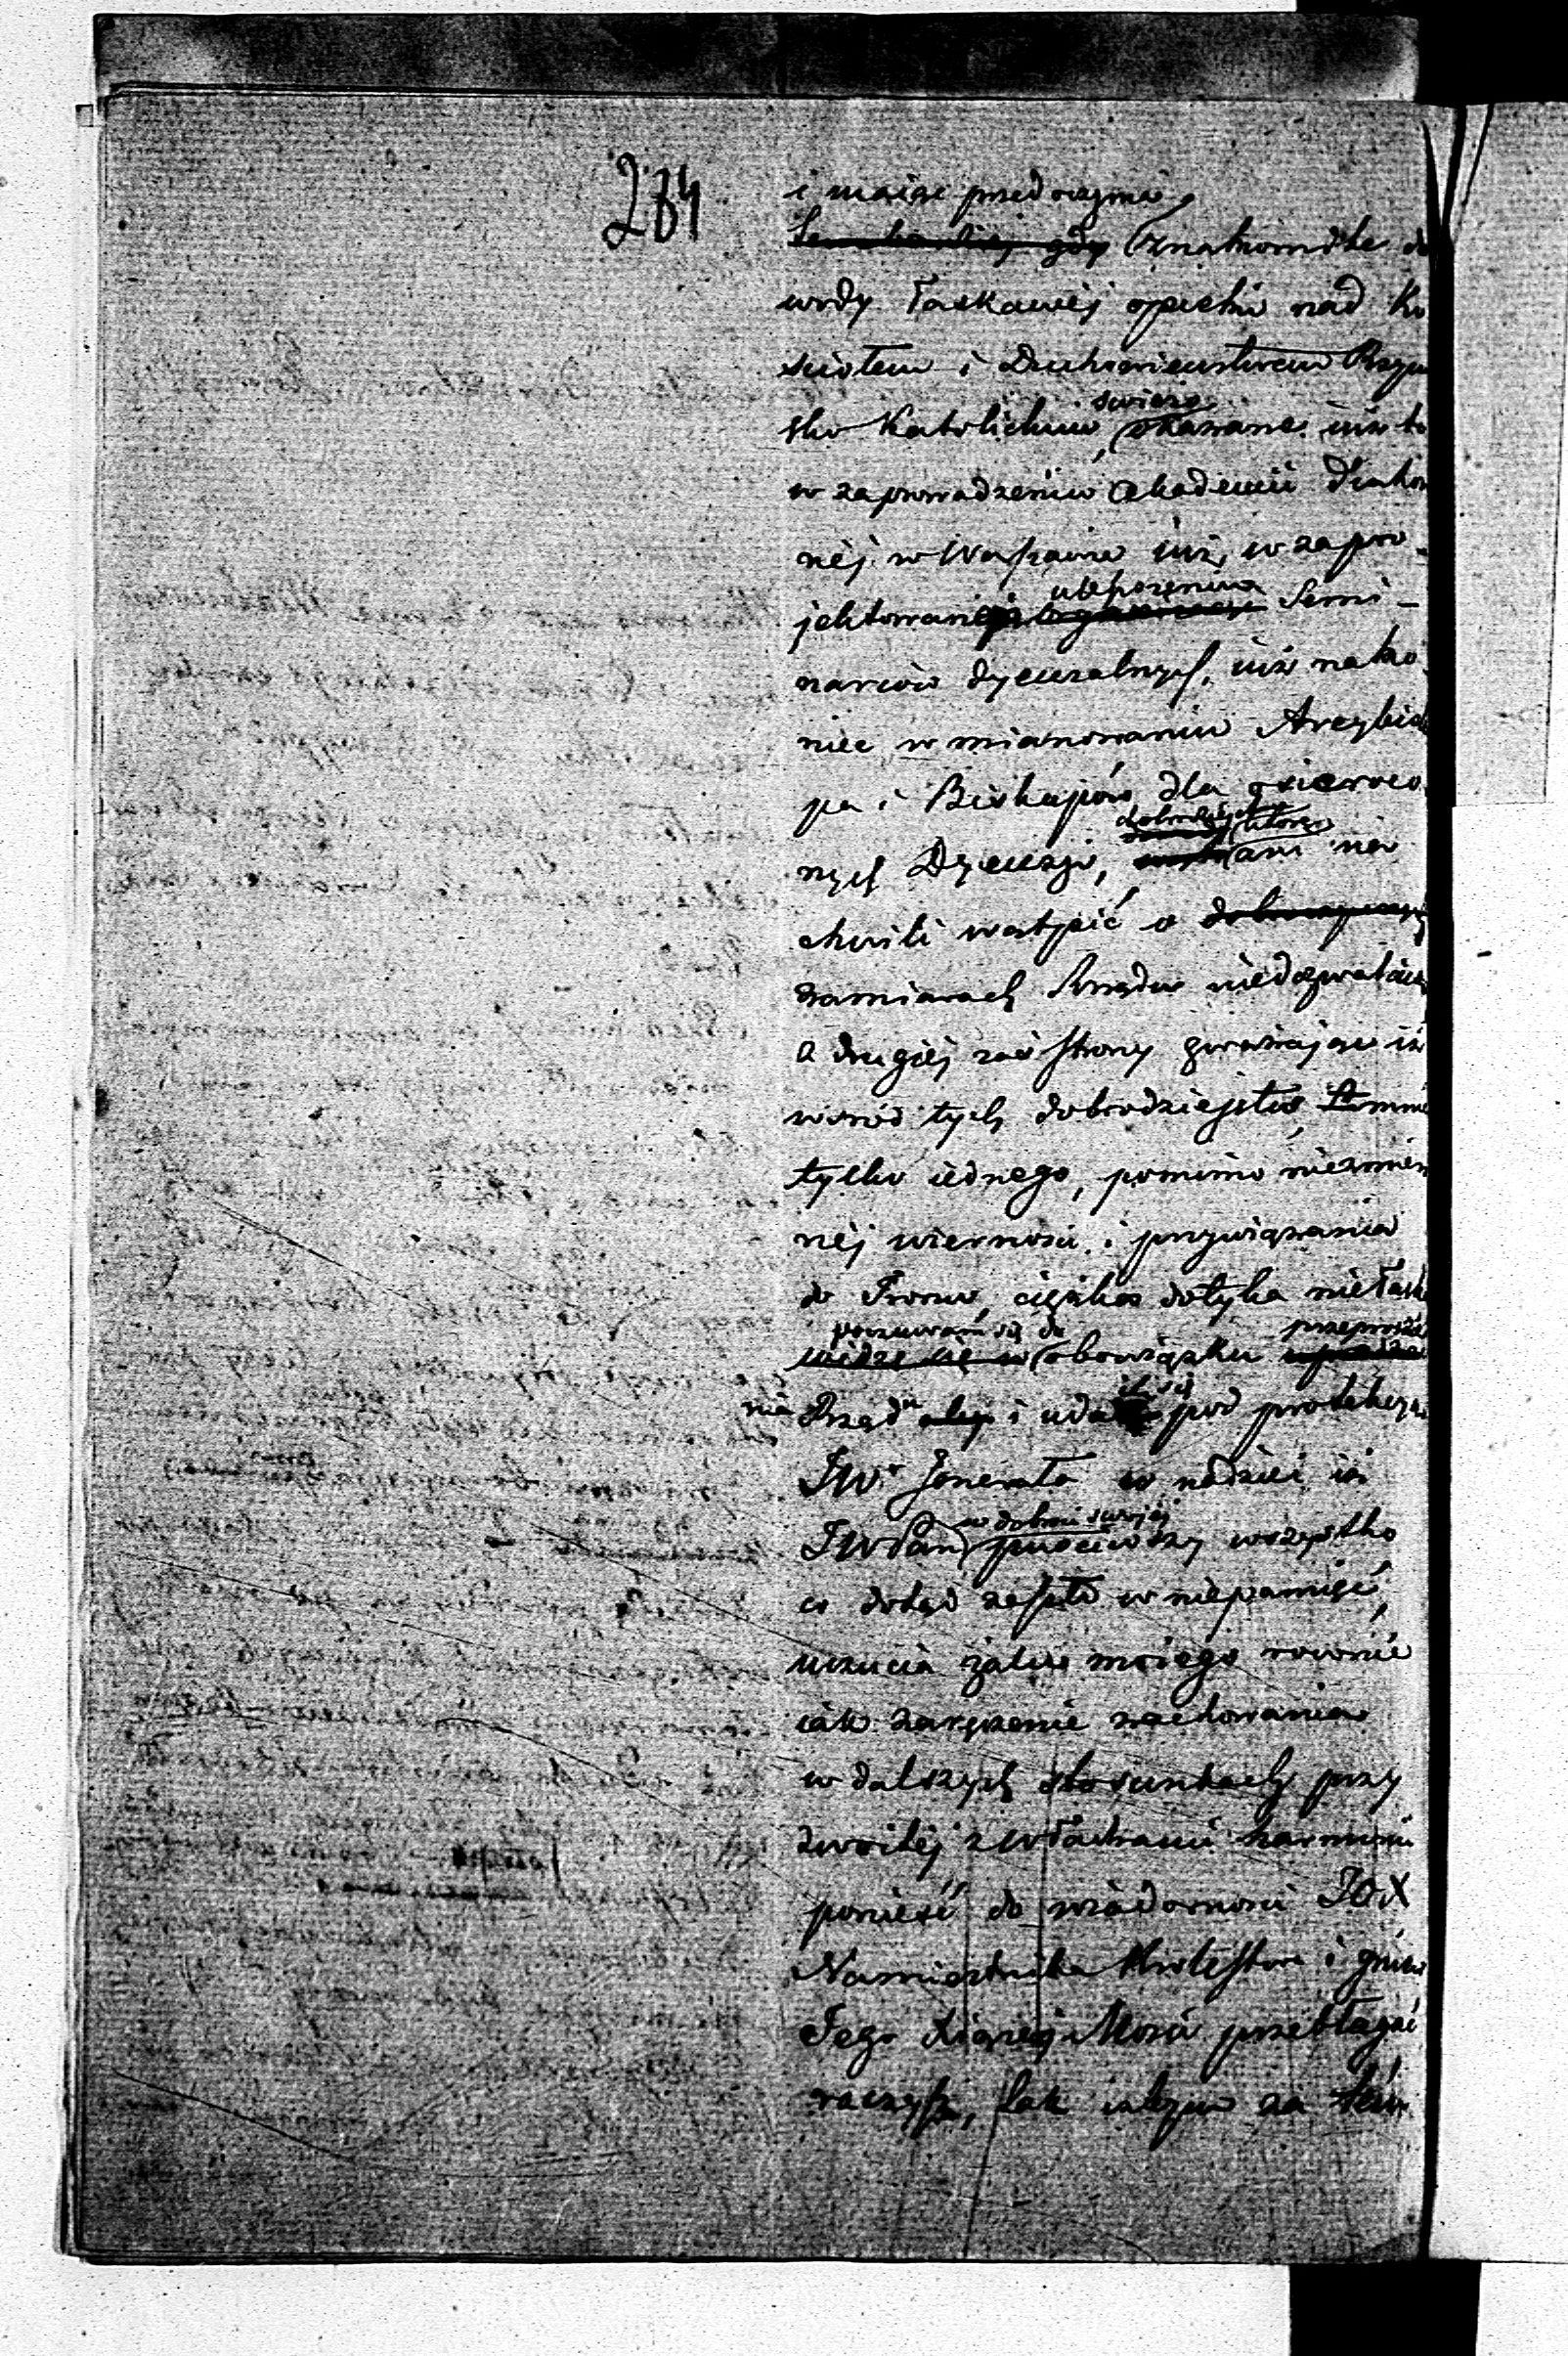 284
i maiąc przed oczyma
znakomite do
wody łaskawej opieki nad Ko
ściołem i Duchowieństwem Rzym
sko Katolickim, świeżo okazane iuż to
w zaprowadzeniu Akademii Duchow
néj w Warszawie iuż, w zapro-
jektowaniu ulepszenia Semi-
nariów dyecezalnych, iuż nako
niec w mianowaniu Arcybisk
pa i Biskupów dla osieroco
nych Dyecezji, które ani na
chwili wątpić o
zamiarach Rządu niedozwalaią
a drugiéj zaś strony zważając iż
wśród tych dobrodziejstw, mnie
tylko iednego, pomimo niezmien
néj wierności i przywiązania
do Tronu, ciężka dotyka niełaska
poczuwam się do obowiązku przeprosze
nia Rządu i udać się pod protekcyą
JW Jenerała w nadziei iż
JWPan w dobroci swojéj puściwszy wszystko
co dotąd zaszło w niepamięć,
uczucia żalu mojego równie
iak zaręczenie zachowania
w dalszych stosunkach przy
zwoitéj z władzami harmonii
ponieść do wiadomości JOX
Namiestnika Królestwa i gniew
Jego Xiążęcéj Mości przebłagać
raczysz, tak iak za tém